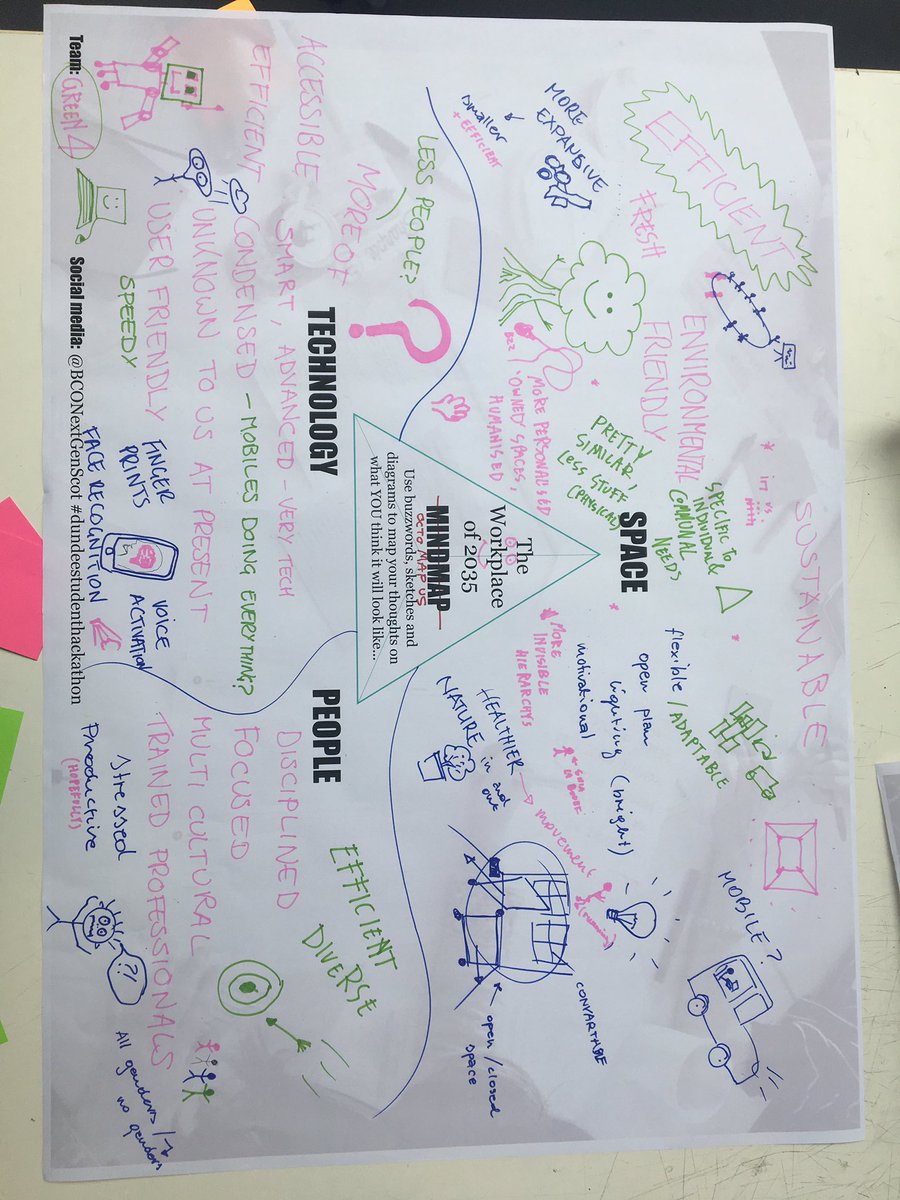 SUSTAINABLE
EFFICIENT
FRESH
ENVIRONMENTAL
FRIENDLY
MORE
EXPANSIVE
smaller
+ EFFICIENT
MORE PERSONALISED
OWNED SPACES,
HUMANISED
PRETTY
SIMILAR,
LESS STUFF
(PHYSICAL)
SPECIFIC TO
INDIVIDUAL &
COMMUNAL
NEEDS
SPACE
flexible / ADAPTABLE
open plan
lighting (bright)
motivational
MORE
INVISIBLE
HIERARCHYS
HEALTHIER
in and out
NATURE
movement
MOBILE?
CONVARTABLE
open/closed
space
The
Workplace
of 2035
MINDMAP
OCTO MAP US
Use buzzwords, sketches and
diagrams to map your thoughts on
what YOU think it will look like...
TECHNOLOGY
LESS PEOPLE?
MORE OF
ACCESSIBLE
SMART, ADVANCED - VERY TECH
EFFICIENT
CONDENSED - MOBILES DOING EVERYTHING?
UNKNOWN TO US AT PRESENT
USER FRIENDLY
SPEEDY
FINGER
PRINTS
VOICE
ACTIVATION
FACE RECOGNITION
PEOPLE
DISCIPLINED
FOCUSED
MULTI CULTURAL
TRAINED PROFESSIONALS
EFFICIENT
DIVERSE
stressed
Productive
(HOPEFULLY)
?!
All genders /
no genders
Team: GREEN 4
Social media: @BCONextGenScot #dundeestudenthackathon